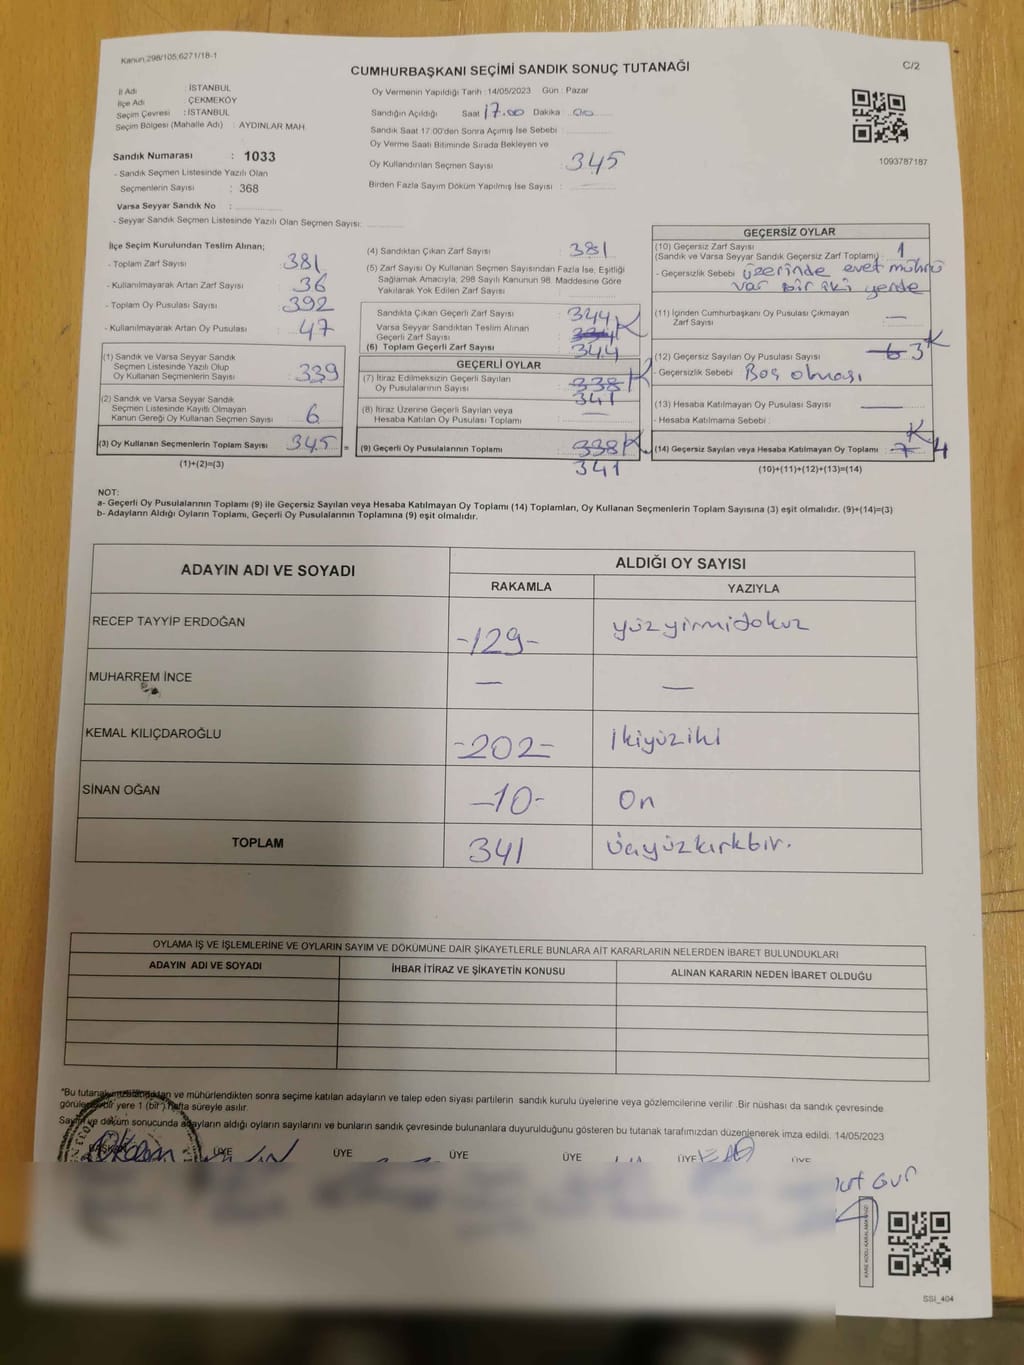 Kanun 298/105;6271/18-1
CUMHURBAŞKANI SEÇİMİ SANDIK SONUÇ TUTANAĞI
C/2
İl Adı : İSTANBUL
İlçe Adı : ÇEKMEKÖY
Seçim Çevresi : İSTANBUL
Seçim Bölgesi (Mahalle Adı) : AYDINLAR MAH.
Sandık Numarası : 1033
- Sandık Seçmen Listesinde Yazılı Olan
Seçmenlerin Sayısı : 368
Varsa Seyyar Sandık No :
- Seyyar Sandık Seçmen Listesinde Yazılı Olan Seçmen Sayısı:
Oy Vermenin Yapıldığı Tarih : 14/05/2023 Gün : Pazar
Sandığın Açıldığı Saat 17.00 Dakika 00
Sandık Saat 17.00'den Sonra Açımış İse Sebebi :
Oy Verme Saati Bitiminde Sırada Bekleyen ve
Oy Kullandırılan Seçmen Sayısı : 345
Birden Fazla Sayım Döküm Yapılmış İse Sayısı : —
1093787187
İlçe Seçim Kurulundan Teslim Alınan;
- Toplam Zarf Sayısı : 381
- Kullanılmayarak Artan Zarf Sayısı : 36
- Toplam Oy Pusulası Sayısı : 392
- Kullanılmayarak Artan Oy Pusulası : 47
(1) Sandık ve Varsa Seyyar Sandık
Seçmen Listesinde Yazılı Olup
Oy Kullanan Seçmenlerin Sayısı : 339
(2) Sandık ve Varsa Seyyar Sandık
Seçmen Listesinde Kayıtlı Olmayan
Kanun Gereği Oy Kullanan Seçmen Sayısı : 6
(3) Oy Kullanan Seçmenlerin Toplam Sayısı : 345 =
(1)+(2)=(3)
(4) Sandıktan Çıkan Zarf Sayısı : 381
(5) Zarf Sayısı Oy Kullanan Seçmen Sayısından Fazla İse, Eşitliği
Sağlamak Amacıyla; 298 Sayılı Kanunun 98. Maddesine Göre
Yakılarak Yok Edilen Zarf Sayısı :
Sandıkta Çıkan Geçerli Zarf Sayısı : 344
Varsa Seyyar Sandıktan Teslim Alınan
Geçerli Zarf Sayısı : 334 K
(6) Toplam Geçerli Zarf Sayısı : 344
GEÇERLİ OYLAR
(7) İtiraz Edilmeksizin Geçerli Sayılan
Oy Pusulalarının Sayısı : 338 K 341
(8) İtiraz Üzerine Geçerli Sayılan veya
Hesaba Katılan Oy Pusulası Toplamı : —
(9) Geçerli Oy Pusulalarının Toplamı : 338 K
341
GEÇERSİZ OYLAR
(10) Geçersiz Zarf Sayısı
(Sandık ve Varsa Seyyar Sandık Geçersiz Zarf Toplamı) : 1
- Geçersizlik Sebebi : üzerinde evet mührü
var bir iki yerde
(11) İçinden Cumhurbaşkanı Oy Pusulası Çıkmayan
Zarf Sayısı : —
(12) Geçersiz Sayılan Oy Pusulası Sayısı : 6 3 K
- Geçersizlik Sebebi : Boş olması
(13) Hesaba Katılmayan Oy Pusulası Sayısı : —
- Hesaba Katılmama Sebebi :
(14) Geçersiz Sayılan veya Hesaba Katılmayan Oy Toplamı : 7 K 4
(10)+(11)+(12)+(13)=(14)
NOT:
a- Geçerli Oy Pusulalarının Toplamı (9) ile Geçersiz Sayılan veya Hesaba Katılmayan Oy Toplamı (14) Toplamları, Oy Kullanan Seçmenlerin Toplam Sayısına (3) eşit olmalıdır. (9)+(14)=(3)
b- Adayların Aldığı Oyların Toplamı, Geçerli Oy Pusulalarının Toplamına (9) eşit olmalıdır.
ADAYIN ADI VE SOYADI
ALDIĞI OY SAYISI
RAKAMLA YAZIYLA
RECEP TAYYİP ERDOĞAN -129- yüzyirmidokuz
MUHARREM İNCE — —
KEMAL KILIÇDAROĞLU -202- ikiyüziki
SİNAN OĞAN -10- On
TOPLAM 341 üçyüzkırkbir.
OYLAMA İŞ VE İŞLEMLERİNE VE OYLARIN SAYIM VE DÖKÜMÜNE DAİR ŞİKAYETLERLE BUNLARA AİT KARARLARIN NELERDEN İBARET BULUNDUKLARI
ADAYIN ADI VE SOYADI İHBAR İTİRAZ VE ŞİKAYETİN KONUSU ALINAN KARARIN NEDEN İBARET OLDUĞU
*Bu tutanak ve mühürlendikten sonra seçime katılan adayların ve talep eden siyasi partilerin sandık kurulu üyelerine veya gözlemcilerine verilir. Bir nüshası da sandık çevresinde
yere 1 (bir) hafta süreyle asılır.
Sayım ve döküm sonucunda adayların aldığı oyların sayılarını ve bunların sandık çevresinde bulunanlara duyurulduğunu gösteren bu tutanak tarafımızdan düzenlenerek imza edildi. 14/05/2023
BAŞKAN ÜYE ÜYE ÜYE ÜYE ÜYE ÜYE
SSİ_404